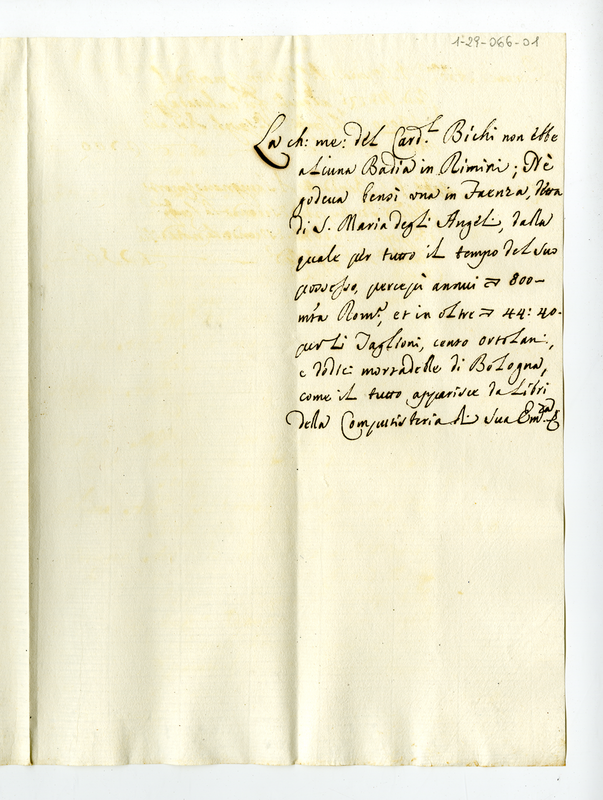 1-29-066-01
La ch: me: del Card.l Bichi non ebbe
alcuna Badia in Rimini; Nè
godeva bensì una in Faenza, detta
di S. Maria degli Angeli, dalla
quale per tutto il tempo del suo
possesso, percepì annui 800-
mta Rom.a, et in oltre 44: 40-
per li Taglioni, cento ortolani,
e dodici mortadelle di Bologna,
come il tutto apparisce da Libri
della Computisteria di sua Em.za